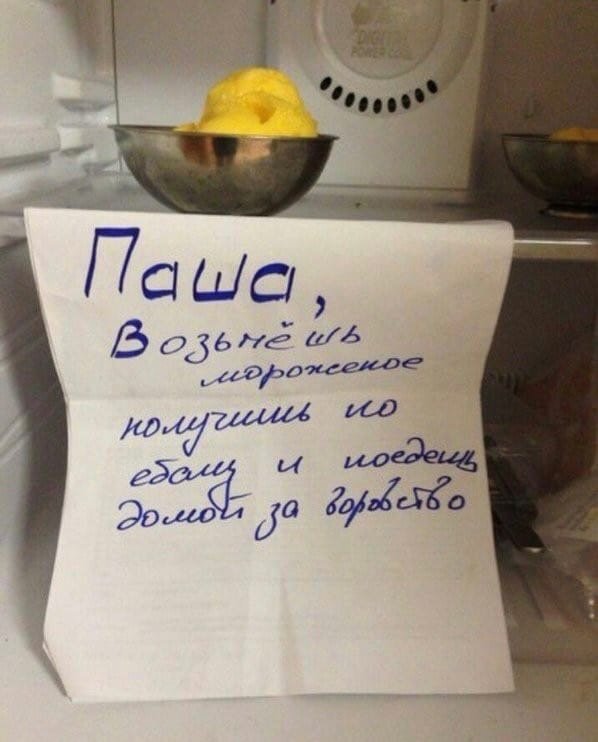 DIGITAL
POWER COOL
Паша,
Возьмёшь
мороженое
получишь по
ебалу и поедешь
домой за воровство